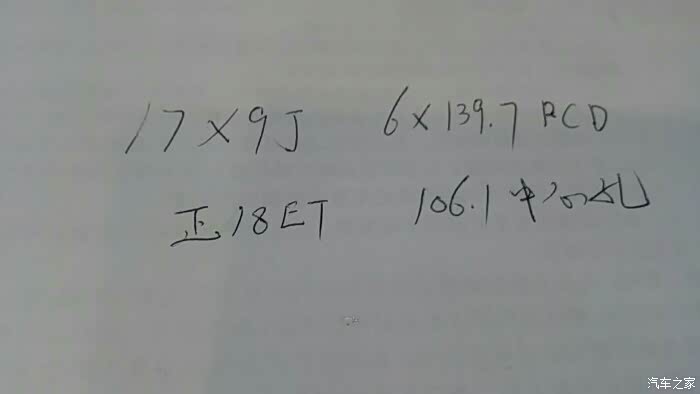 17×9J 6×139.7 PCD
正18ET 106.1中心孔
汽车之家